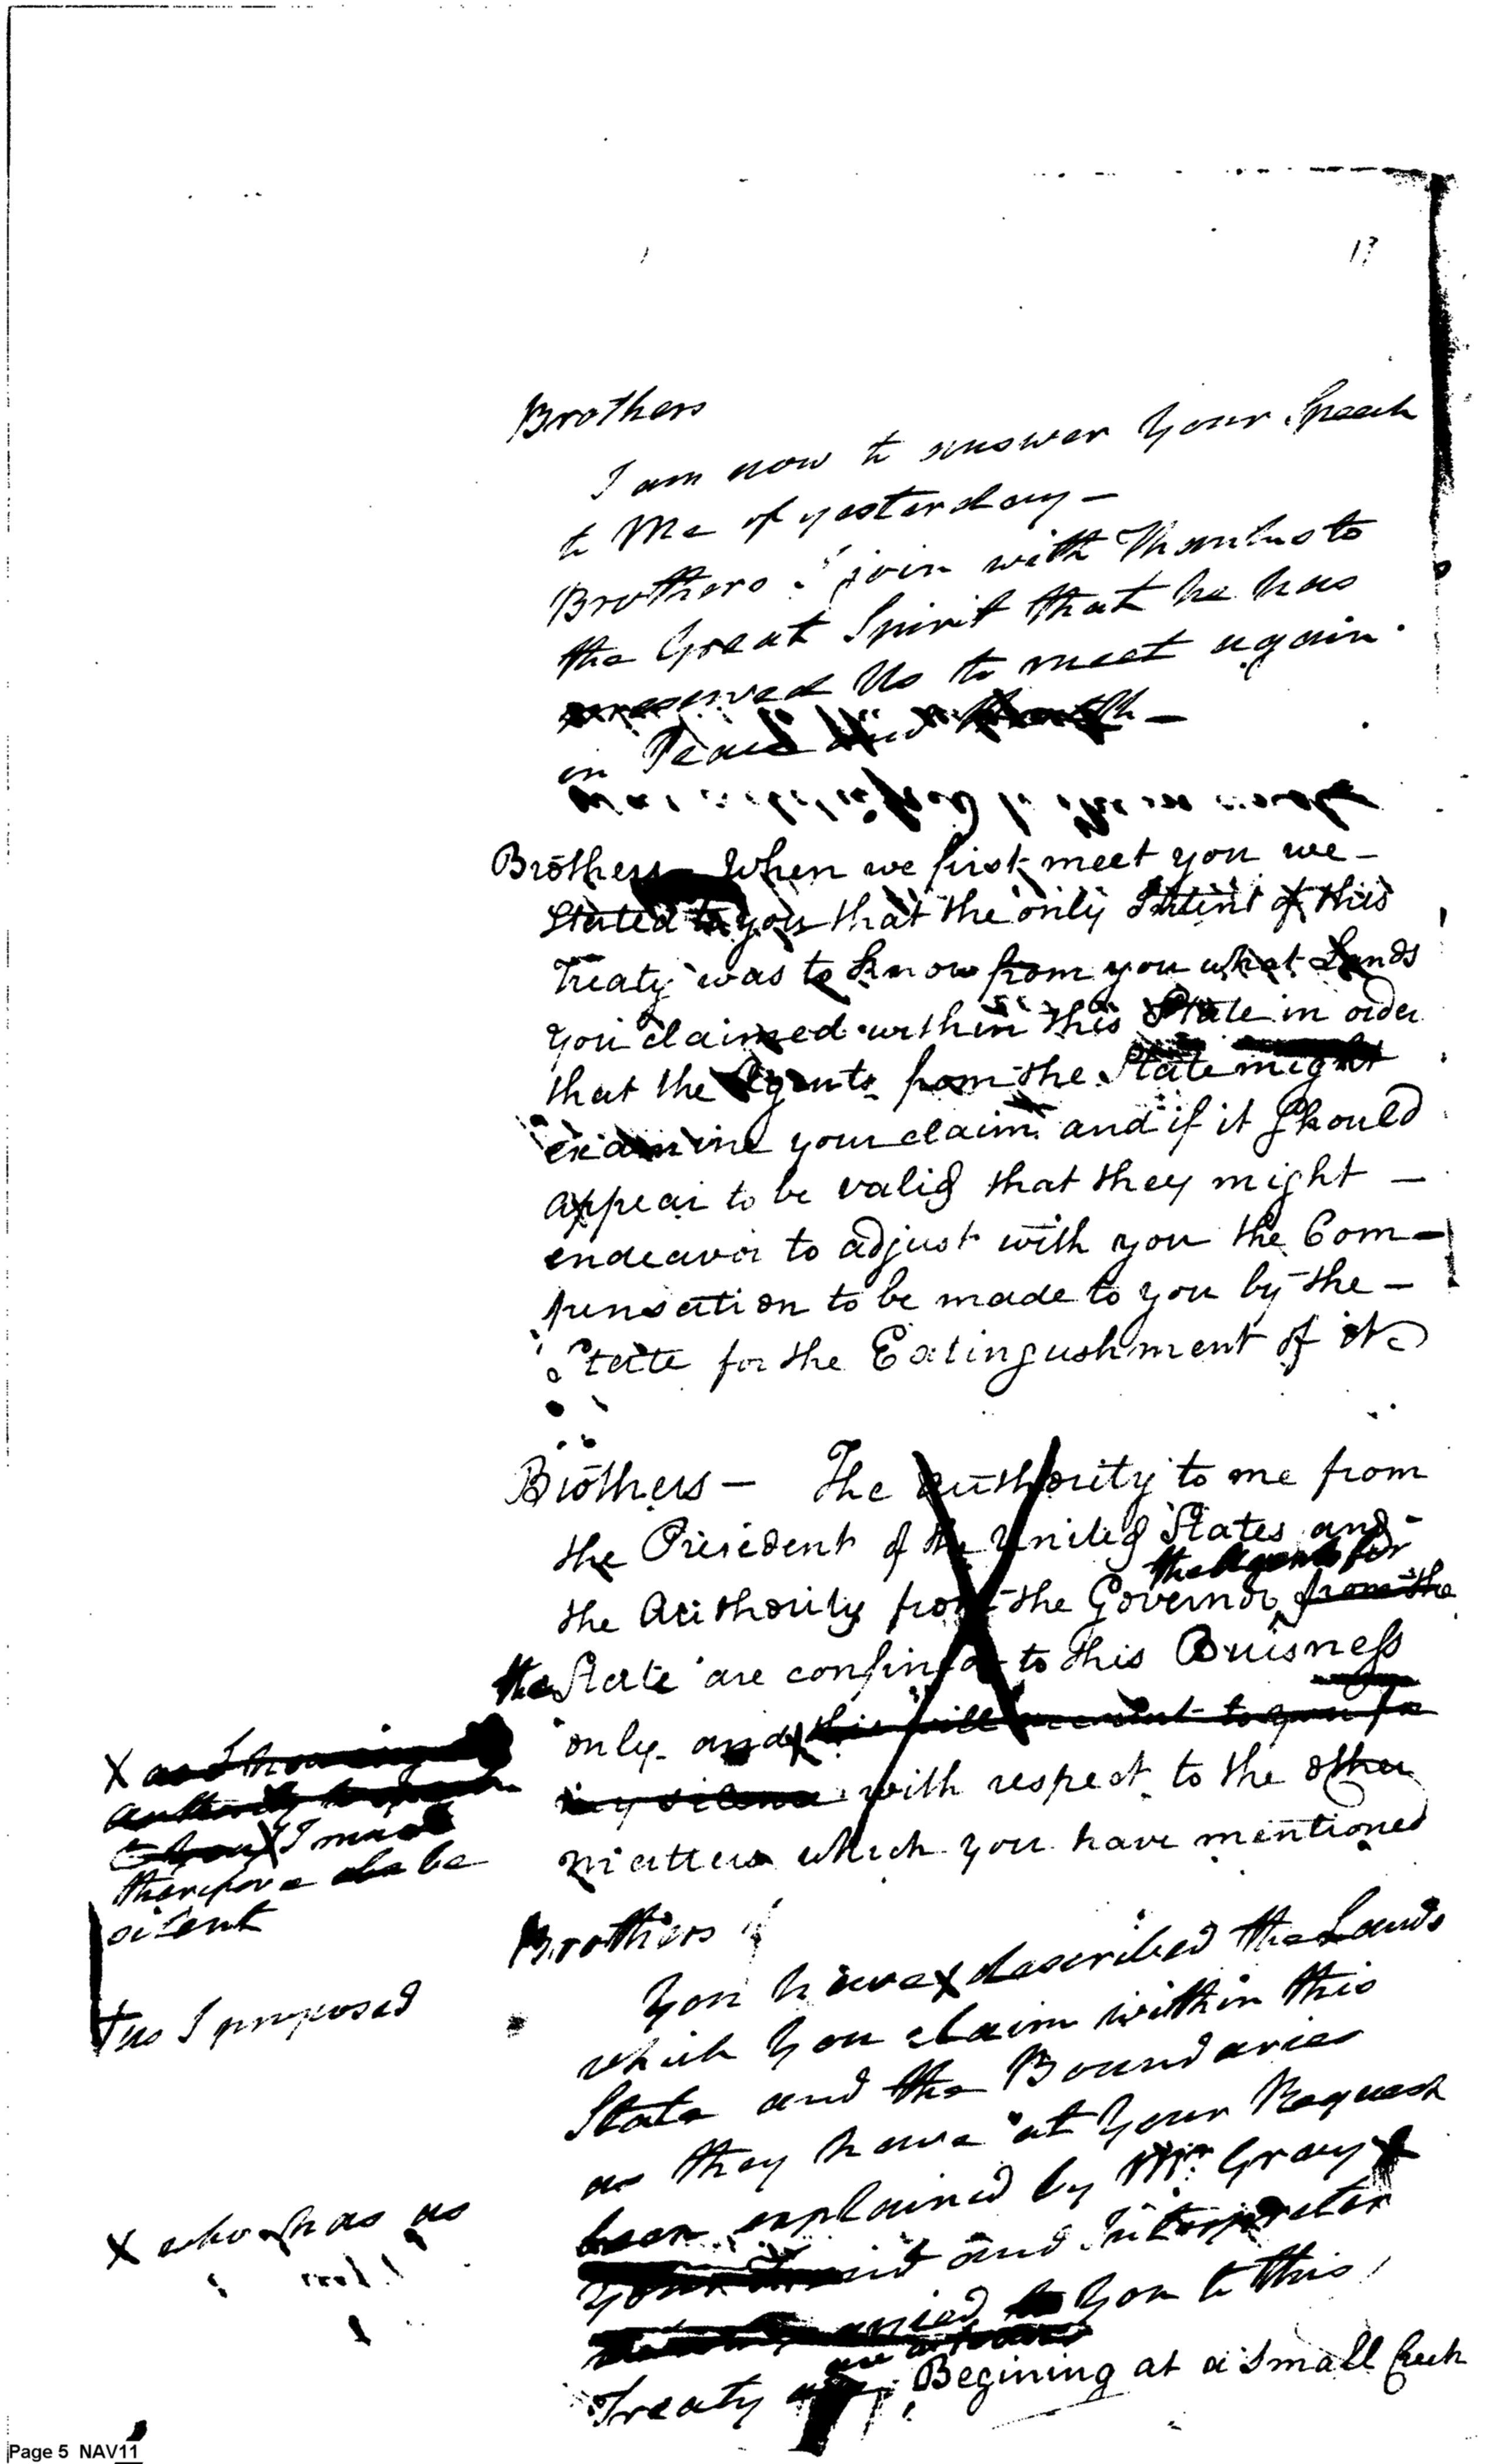 Brothers
I am now to answer Your Speech
to Me of yesterday —
Brothers I join with Thanks to
the Great Spirit that he has
preserved Us to meet again
in Peace and
Brothers When we first meet you we —
Stated to you that the only Intent of this
Treaty was to know from you what Lands
you claimed within this State in order
that the Agents from the State might
examine your claim and if it Should
appear to be valid that they might —
endeavor to adjust with you the Com—
pensation to be made to you by the —
State for the Extinguishment of it
Brothers — The authority to me from
the President of the United States and
the Agents for
the Authority from the Governor from the
the State are confined to this Buisness
only and this will account to you for
my silence with respect to the other
matters which you have mentioned
X as I have no
authority to speak
to you X I must
therefore be
silent
Brothers
† as I proposed
You have X described the Lands
which You claim within this
State and the Boundaries
as they have at Your Request
been explained by Mr Gray X
X who has as
Your and Interpreter
You to this
Treaty are as follows Begining at a Small Creek
17
Page 5 NAV11